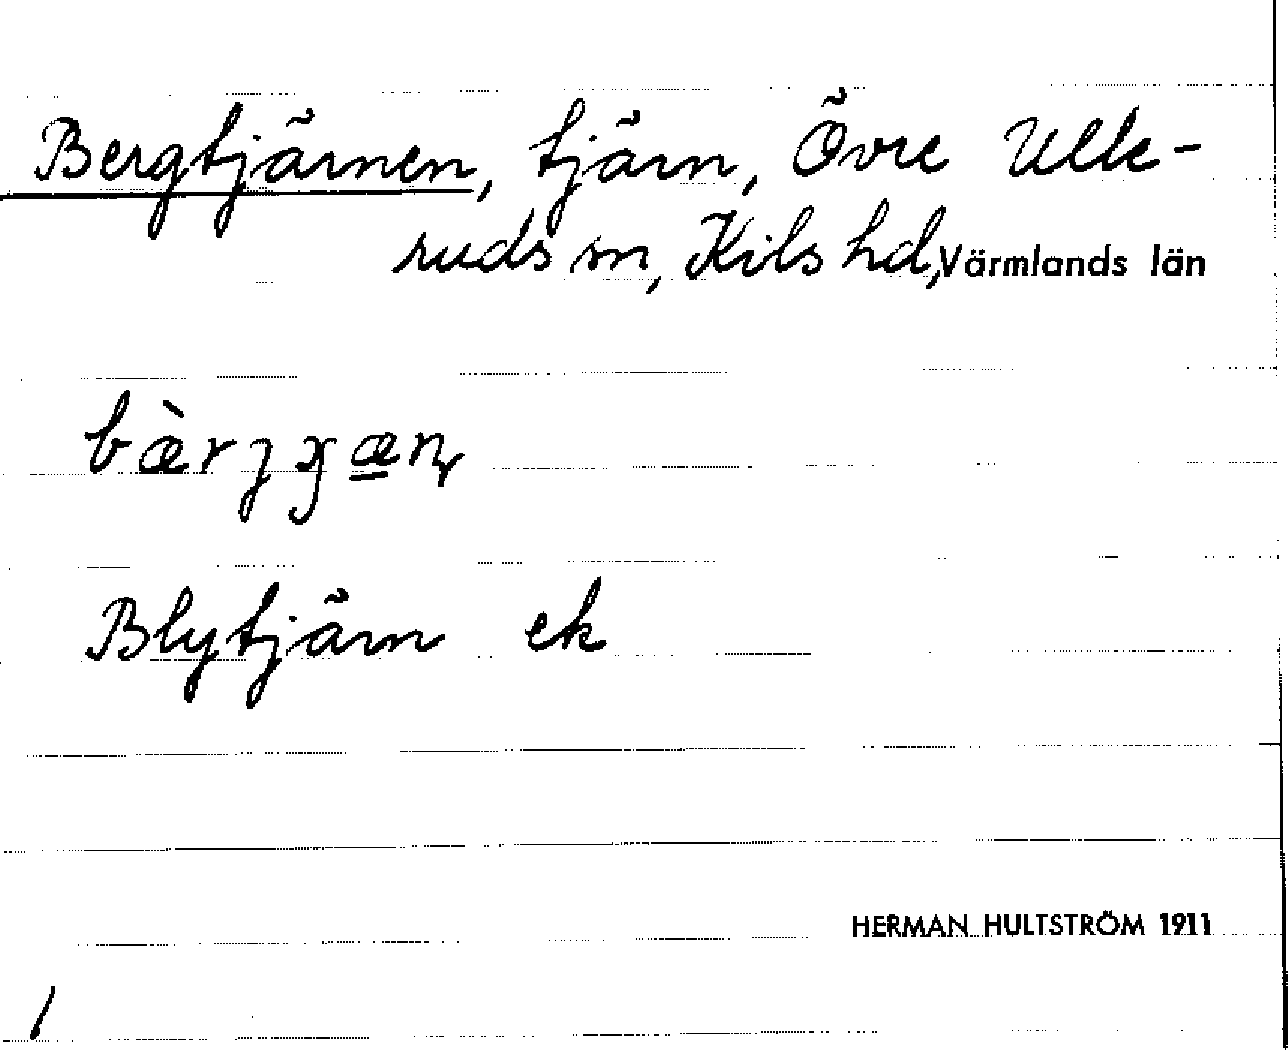 Bergtjärnen, tjärn, Övre Ulle-
ruds sn, Kils hd, Värmlands län
Blytjärn ek
HERMAN HULTSTRÖM 1911